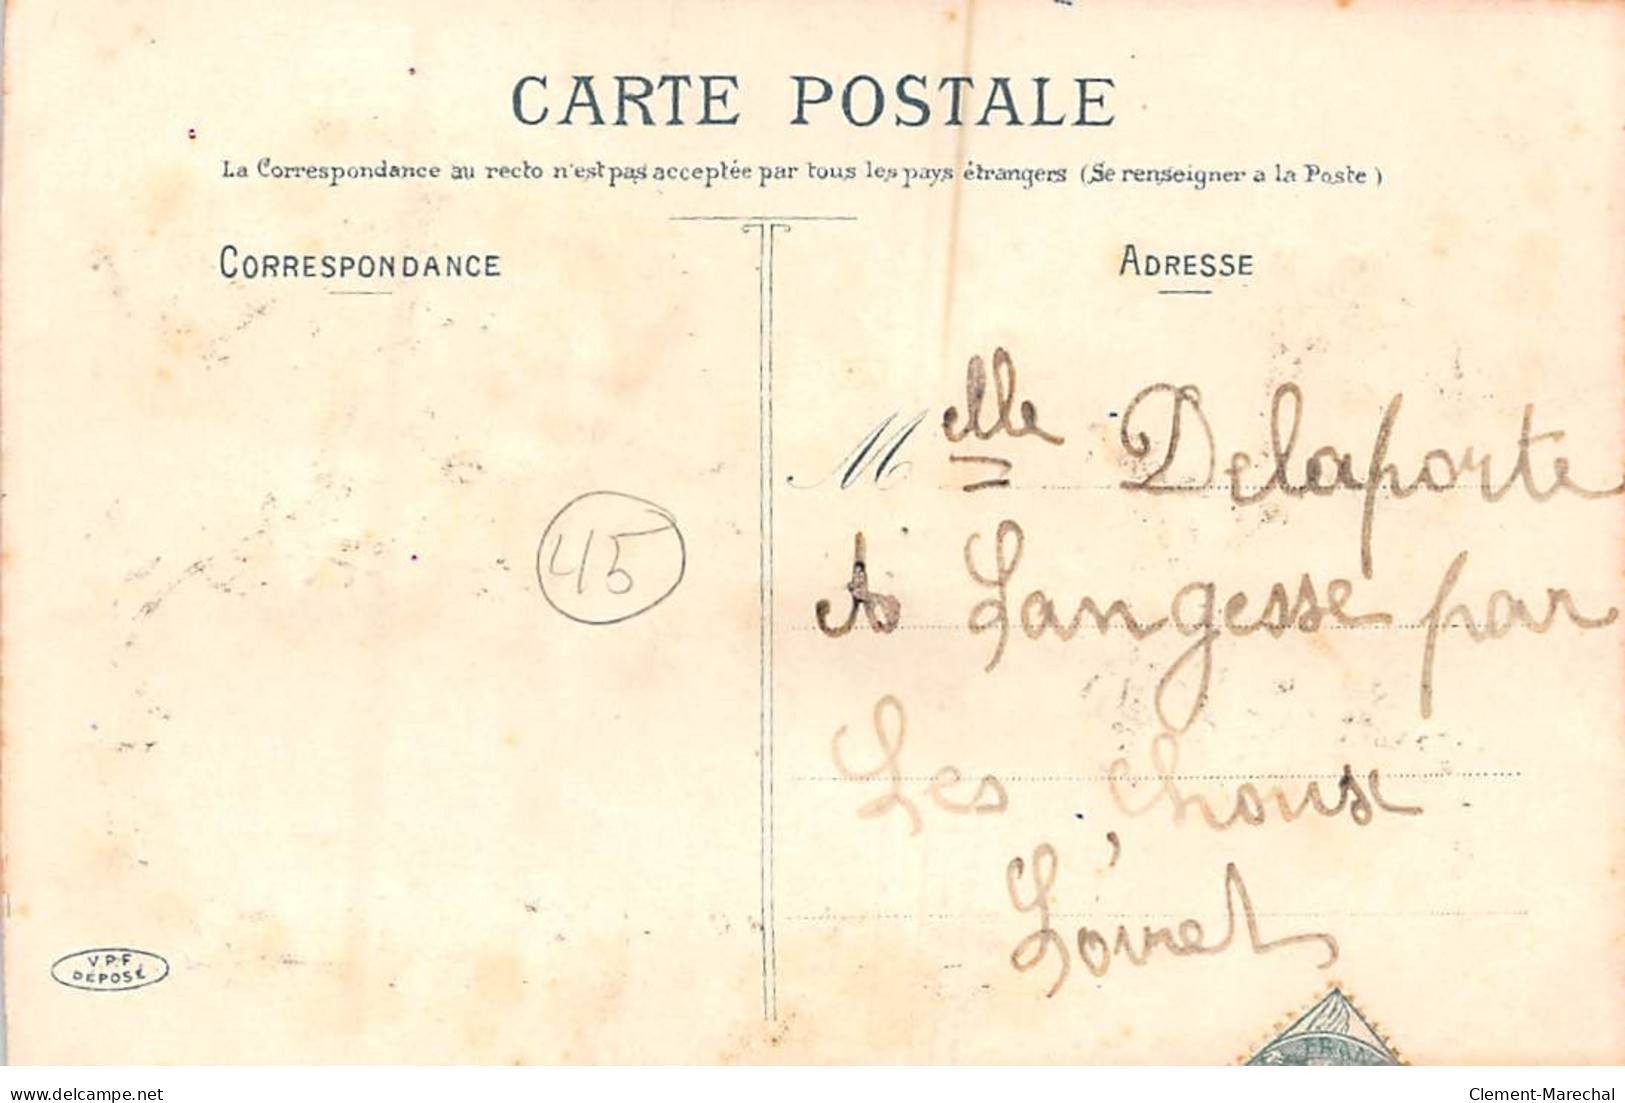 CARTE POSTALE
La Correspondance au recto n'est pas acceptée par tous les pays étrangers (Se renseigner a la Poste)
CORRESPONDANCE
ADRESSE
Melle Delaporte
A Langesse par
Les choux
Loiret
45
V.P.F
DÉPOSÉ
FRAN
www.delcampe.net
Clement-Marechal